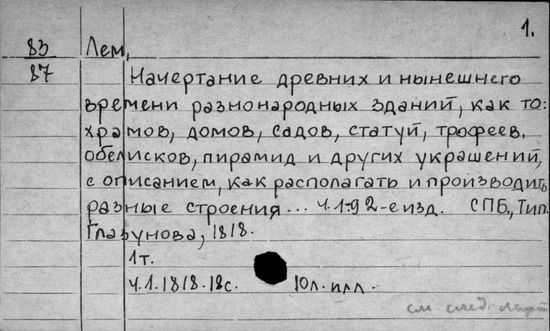 1.
83 Лем,
87 Начертание древних и нынешнего
времени разнонародных зданий, как то:
храмов, домов, садов, статуй, трофеев,
обелисков, пирамид и других украшений,
с описанием, как располагать и производить
разные строения... Ч.1-92-е изд. СПБ., Тип.
Глазунова, 1818.
1т.
Ч.1.1818.18с. 10л. илл.
см след.